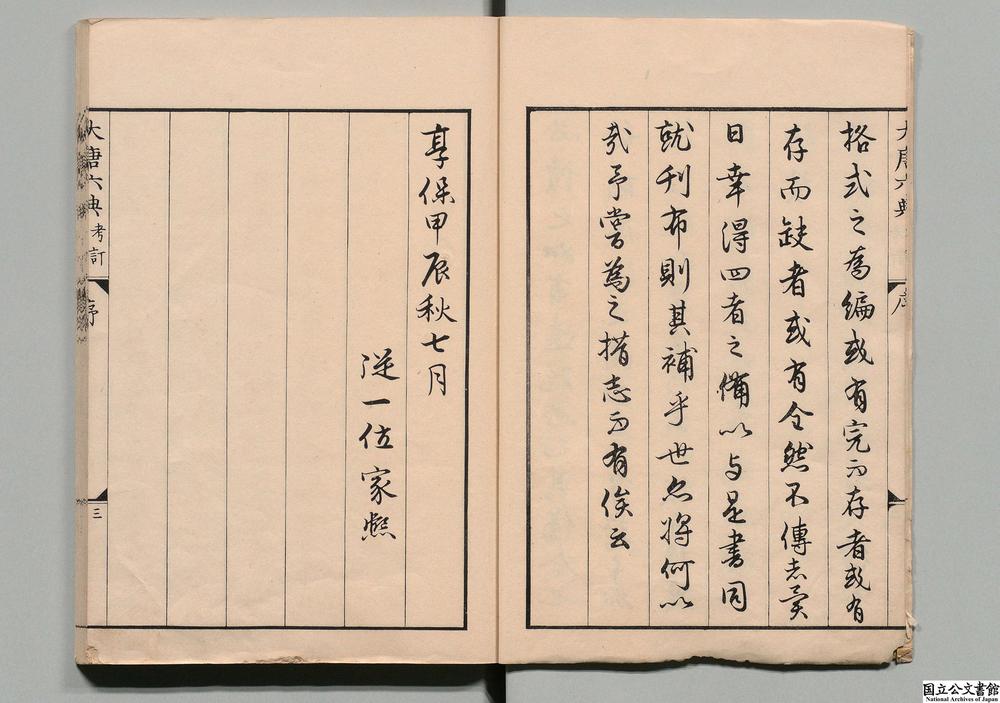 大唐六典
序
格式之為編或有完而存者或有
存而缺者或有全然不傳志異
日幸得四者之備以与是書同
就刊布則其補乎世也将何以
哉予嘗為之措志而有俟云
享保甲辰秋七月
従一位家熙
大唐六典考訂
序
三
国立公文書館
National Archives of Japan